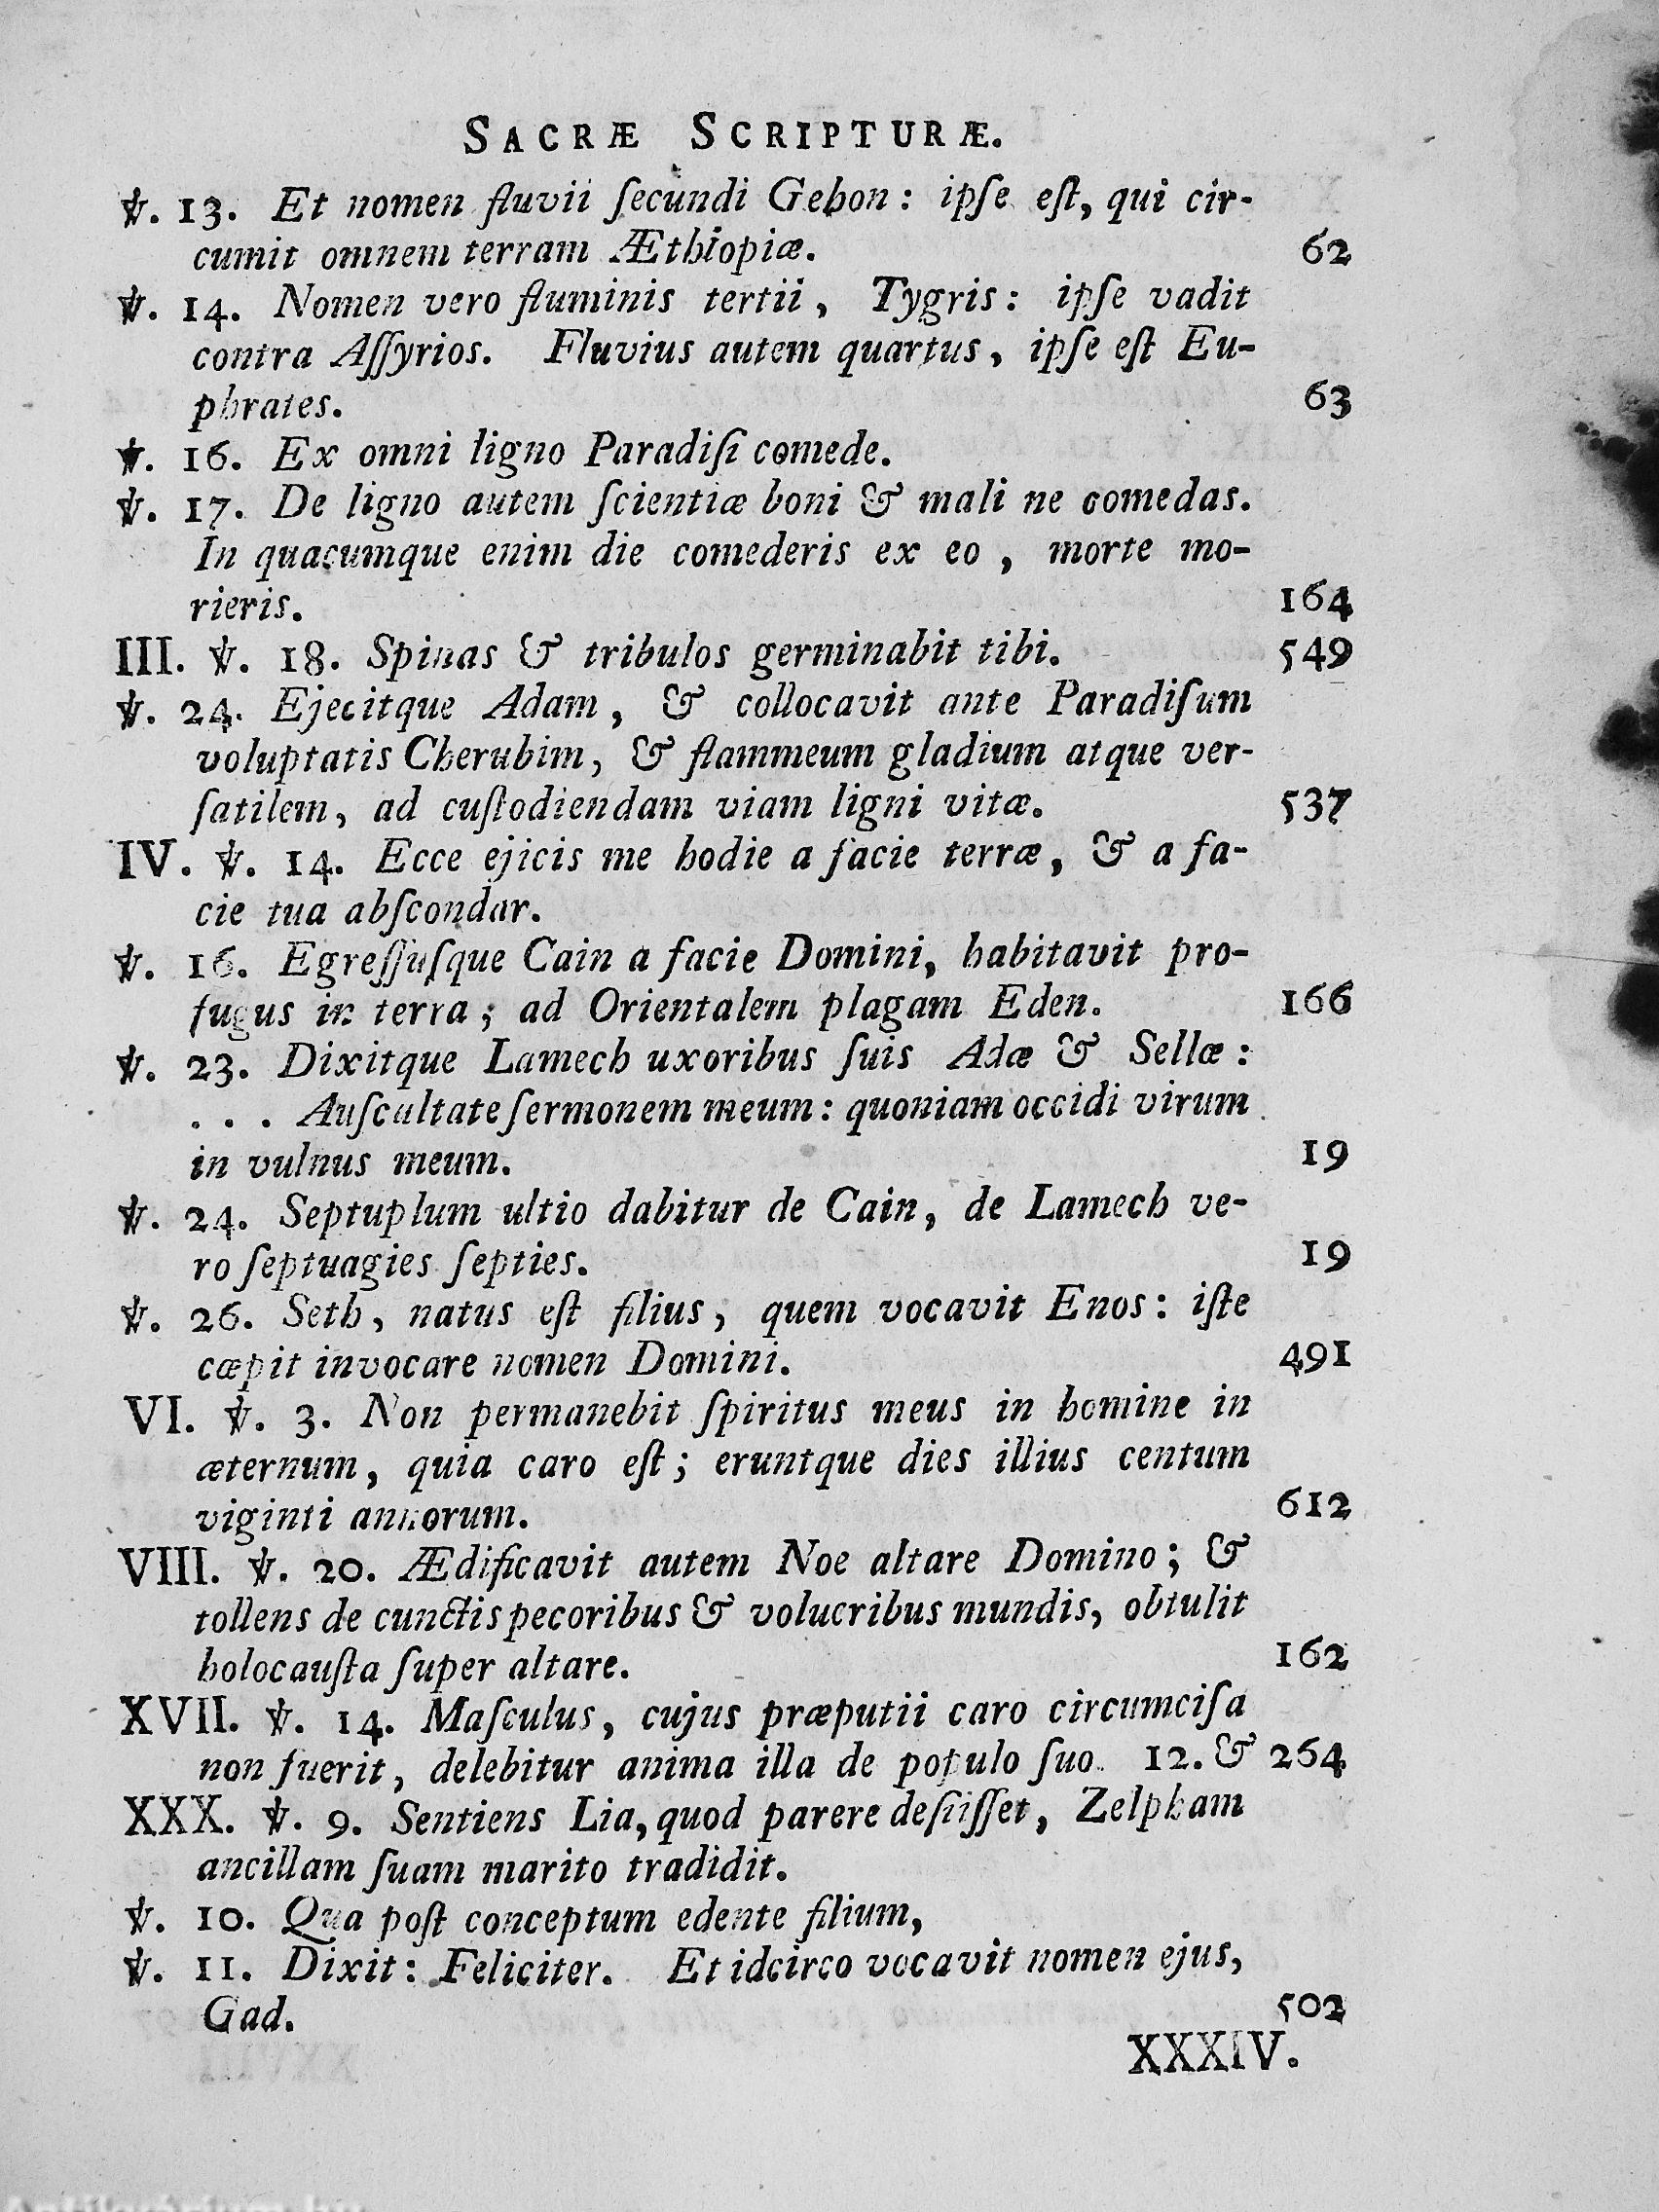 SACRÆ SCRIPTURÆ.
℣. 13. Et nomen fluvii ſecundi Gehon: ipſe eſt, qui cir-
cumit omnem terram Æthiopiæ. 62
℣. 14. Nomen vero fluminis tertii, Tygris: ipſe vadit
contra Aſſyrios. Fluvius autem quartus, ipſe eſt Eu-
phrates. 63
℣. 16. Ex omni ligno Paradiſi comede.
℣. 17. De ligno autem ſcientiæ boni & mali ne comedas.
In quacumque enim die comederis ex eo, morte mo-
rieris. 164
III. ℣. 18. Spinas & tribulos germinabit tibi. 549
℣. 24. Ejecitque Adam, & collocavit ante Paradiſum
voluptatis Cherubim, & flammeum gladium atque ver-
ſatilem, ad cuſtodiendam viam ligni vitæ. 537
IV. ℣. 14. Ecce ejicis me hodie a facie terræ, & a fa-
cie tua abſcondar.
℣. 16. Egreſſuſque Cain a facie Domini, habitavit pro-
fugus in terra; ad Orientalem plagam Eden. 166
℣. 23. Dixitque Lamech uxoribus ſuis Adæ & Sellæ:
. . . Auſcultate ſermonem meum: quoniam occidi virum
in vulnus meum. 19
℣. 24. Septuplum ultio dabitur de Cain, de Lamech ve-
ro ſeptuagies ſepties. 19
℣. 26. Seth, natus eſt filius, quem vocavit Enos: iſte
cæpit invocare nomen Domini. 491
VI. ℣. 3. Non permanebit ſpiritus meus in homine in
æternum, quia caro eſt; eruntque dies illius centum
viginti annorum. 612
VIII. ℣. 20. Ædificavit autem Noe altare Domino; &
tollens de cunctis pecoribus & volucribus mundis, obtulit
holocauſta ſuper altare. 162
XVII. ℣. 14. Maſculus, cujus præputii caro circumciſa
non fuerit, delebitur anima illa de populo ſuo. 12. & 264
XXX. ℣. 9. Sentiens Lia, quod parere deſiiſſet, Zelpham
ancillam ſuam marito tradidit.
℣. 10. Qua poſt conceptum edente filium,
℣. 11. Dixit: Feliciter. Et idcirco vocavit nomen ejus,
Gad. 502
XXXIV.